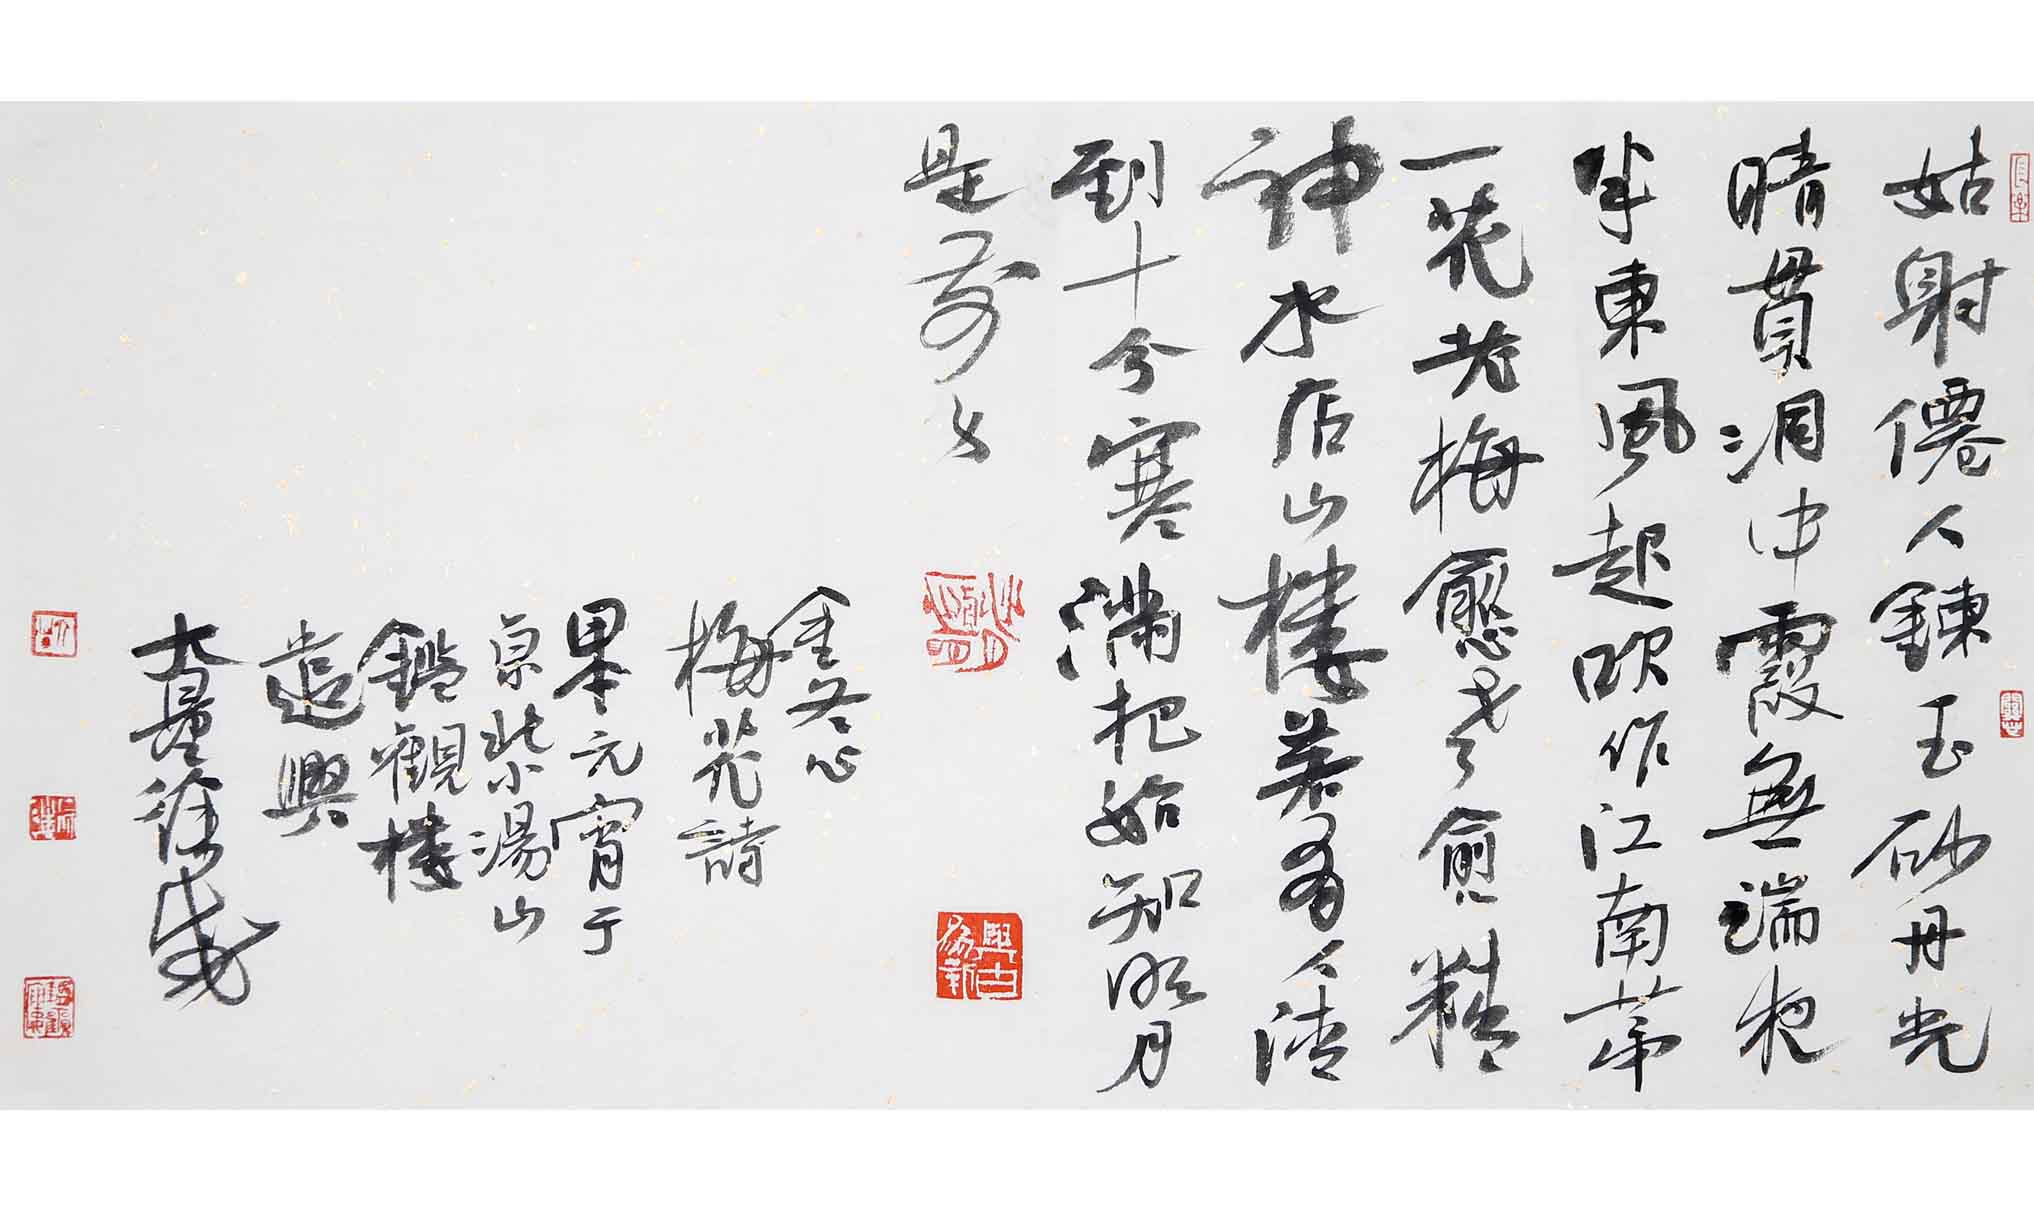 姑射僊人鍊玉砂丹光
晴貫洞中霞無端夜
半東風起吹作江南第
一花老梅愈老愈精
神水店山樓若有人清
到十分寒滿把始知明月
是前身
金冬心
梅花詩
果元宵于
京紫湯山
鑑觀樓
遣興